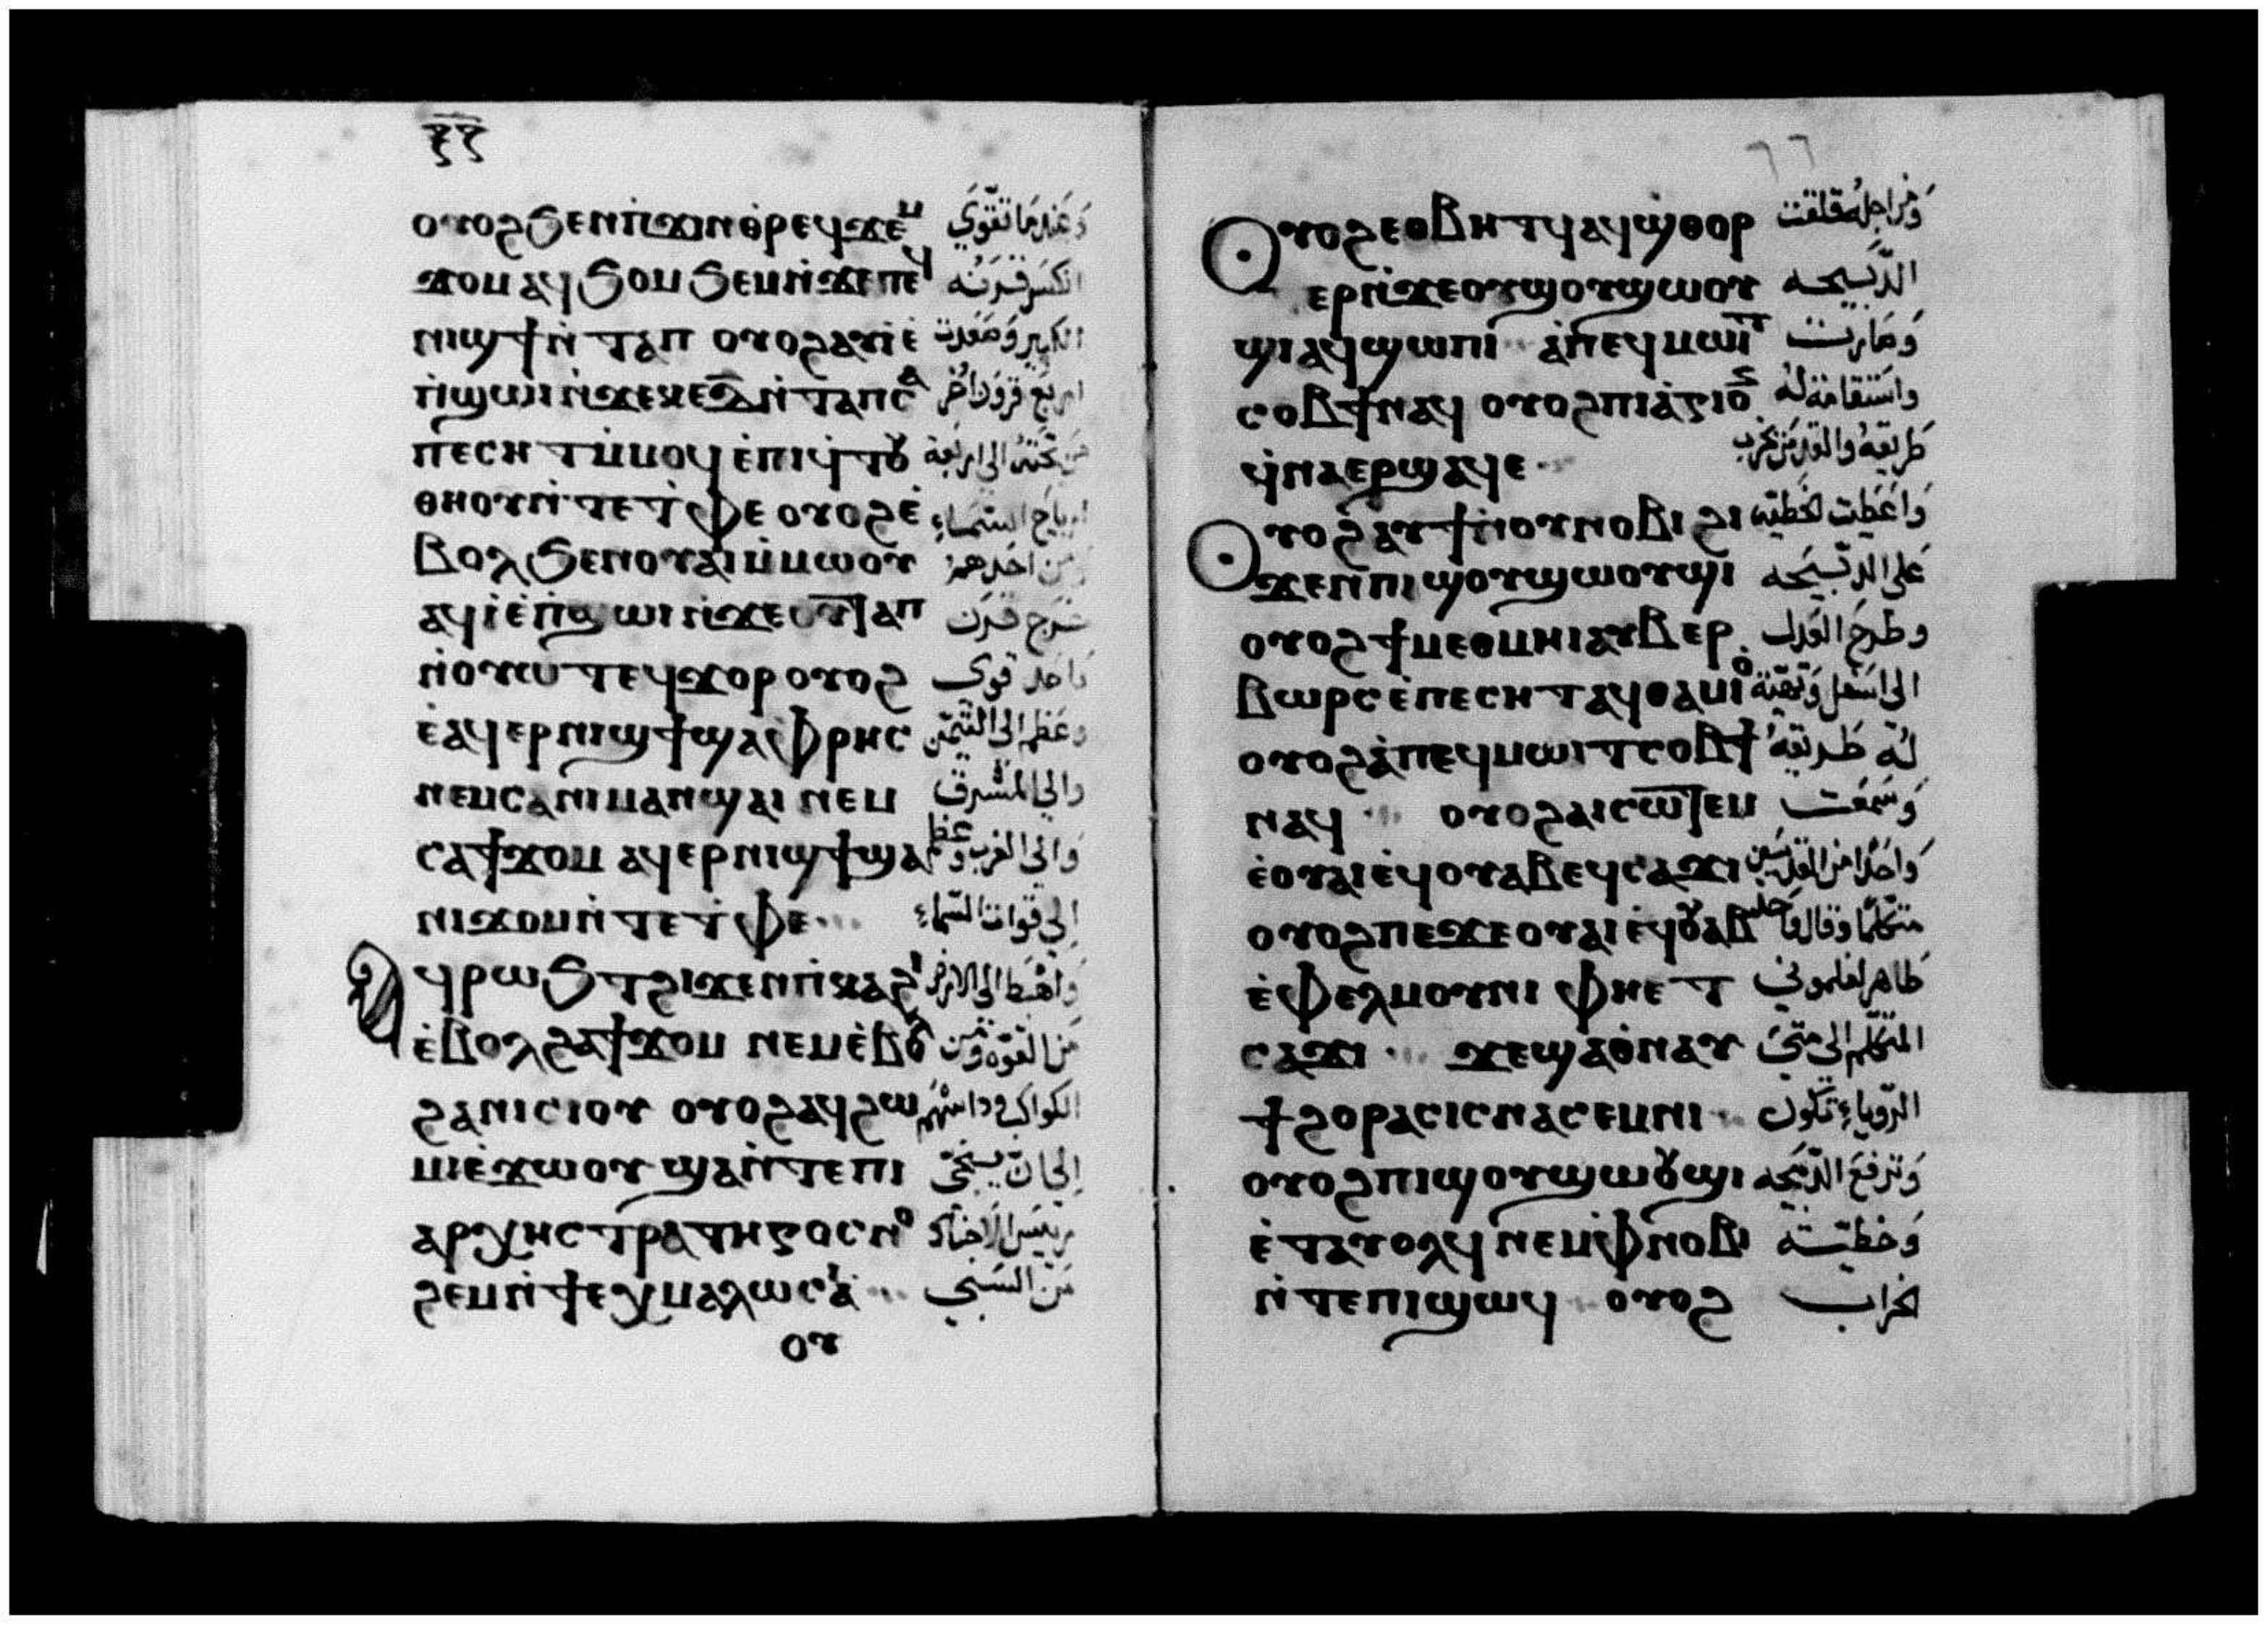 ⲟⲩⲟϩ ϧⲉⲛ ⲡ̀ϫⲓⲛⲑⲣⲉϥϫⲉⲙ وَعندما تقوي
ϫⲟⲙ ⲁϥϧⲟⲙϧⲉⲙ ⲛ̀ϫⲉ ⲡⲉϥ انكسر قرنه
ⲛⲓϣϯ ⲛ̀ⲧⲁⲡ ⲟⲩⲟϩ ⲁⲩⲓ̀ ⲉ̀ الكبير وصعدت
ⲡ̀ϣⲱⲓ ⲛ̀ϫⲉ ⲕⲉ ⲇ̅ ⲛ̀ⲧⲁⲡ ⲥⲁ اربع قرون اخر
ⲡⲉⲥⲏⲧ ⲙ̀ⲙⲟϥ ⲉ̀ⲡⲓϥ̀ⲧⲟⲩ من تحته الى اربعة
ⲑⲏⲟⲩ ⲛ̀ⲧⲉ ⲧ̀ⲫⲉ ⲟⲩⲟϩ ⲉ̀ ارياح السماء
ⲃⲟⲗ ϧⲉⲛ ⲟⲩⲁⲓ ⲙ̀ⲙⲱⲟⲩ من احدهم
ⲁϥⲓ̀ ⲉ̀ⲡ̀ϣⲱⲓ ⲛ̀ϫⲉ ⲟⲩⲧⲁⲡ خرج قرن
ⲛ̀ⲟⲩⲱⲧ ⲉϥϫⲟⲣ ⲟⲩⲟϩ واحد قوي
ⲉ̀ⲁϥⲉⲣⲛⲓϣϯ ϣⲁ ⲫ̀ⲣⲏⲥ وعظم الى التيمن
ⲛⲉⲙ ⲥⲁ ⲛⲓⲙⲁⲛϣⲁⲓ ⲛⲉⲙ والى المشرق
ⲥⲁ ϯϫⲟⲙ ⲁϥⲉⲣⲛⲓϣϯ ϣⲁ والى الغرب وعظم
ⲛⲓϫⲟⲙ ⲛ̀ⲧⲉ ⲧ̀ⲫⲉ الى قوات السماء
ⲁϥⲣⲱϧⲧ ϩⲓϫⲉⲛ ⲡ̀ⲕⲁϩⲓ واهبط الى الارض
ⲉ̀ⲃⲟⲗ ϩⲁ ϯϫⲟⲙ ⲛⲉⲙ ⲉ̀ⲃⲟⲗ من القوة ومن
ϩⲁ ⲛⲓⲥⲓⲟⲩ ⲟⲩⲟϩ ⲁϥϩⲱ الكواكب وداستهم
ⲙⲓ ⲉ̀ϫⲱⲟⲩ ϣⲁⲛ̀ⲧⲉ ⲡⲓ الى ان ينجى
ⲁⲣⲭⲏⲥⲧⲣⲁⲧⲏⲅⲟⲥ ⲛⲟ رييس الاجناد
ϩⲉⲙ ⲛ̀ϯⲉⲭⲙⲁⲗⲱⲥⲓⲁ̀ من السبي
ⲟⲩ
ⲟⲩⲟϩ ⲉⲑⲃⲏⲧϥ ⲁϥϣⲑⲟⲣ ومن اجله قلقت
ⲧⲉⲣ ⲛ̀ϫⲉ ⲟⲩϣⲟⲩϣⲱⲟⲩ الذبيحه
ϣⲓ ⲁϥϣⲱⲡⲓ ⲁ̀ ⲡⲉϥⲙⲱⲓⲧ وصارت
ⲥⲟⲃϯ ⲛⲁϥ ⲟⲩⲟϩ ⲡⲓⲁ̀ⲅⲓⲟⲥ واستقامة له
ϥ̀ⲛⲁⲉⲣϣⲁϥⲉ طريقه والقدس يخرب
ⲟⲩⲟϩ ⲁⲩϯ ⲛ̀ⲟⲩⲛⲟⲃⲓ ϩⲓ واعطيت لخطيه
ϫⲉⲛ ⲡⲓϣⲟⲩϣⲱⲟⲩϣⲓ على الذبيحه
ⲟⲩⲟϩ ϯⲙⲉⲑⲙⲏⲓ ⲁⲩⲃⲉⲣ وطرح العدل
ⲃⲱⲣⲥ ⲉ̀ⲡⲉⲥⲏⲧ ⲁϥⲑⲁⲙⲓⲟ الى اسفل
ⲟⲩⲟϩ ⲁ̀ ⲡⲉϥⲙⲱⲓⲧ ⲥⲟⲃϯ له طريقه
ⲛⲁϥ ⲟⲩⲟϩ ⲁⲓⲥⲱⲧⲉⲙ وسمعت
ⲉ̀ⲟⲩⲁⲓ ⲉϥⲟⲩⲁⲃ ⲉϥⲥⲁϫⲓ واحدا من القديسين
ⲟⲩⲟϩ ⲡⲉϫⲉ ⲟⲩⲁⲓ ⲉϥⲟⲩⲁⲃ متكلما وقال واحد
ⲉ̀ⲫⲉⲗⲙⲟⲩⲛⲓ ⲫⲏⲉⲧ طاهر لفلموني
ⲥⲁϫⲓ ϫⲉ ϣⲁ ⲑ̀ⲛⲁⲩ المتكلم الى متى
ϯϩⲟⲣⲁⲥⲓⲥ ⲛⲁⲥⲉⲙⲛⲓ الروياء تكون
ⲟⲩⲟϩ ⲡⲓϣⲟⲩϣⲱⲟⲩϣⲓ وترفع الذبيحه
ⲉ̀ⲧⲁⲩⲟⲗϥ ⲛⲉⲙ ⲫ̀ⲛⲟⲃⲓ وخطيته
ⲛ̀ⲧⲉ ⲡⲓϣⲱϥ ⲟⲩⲟϩ لخراب